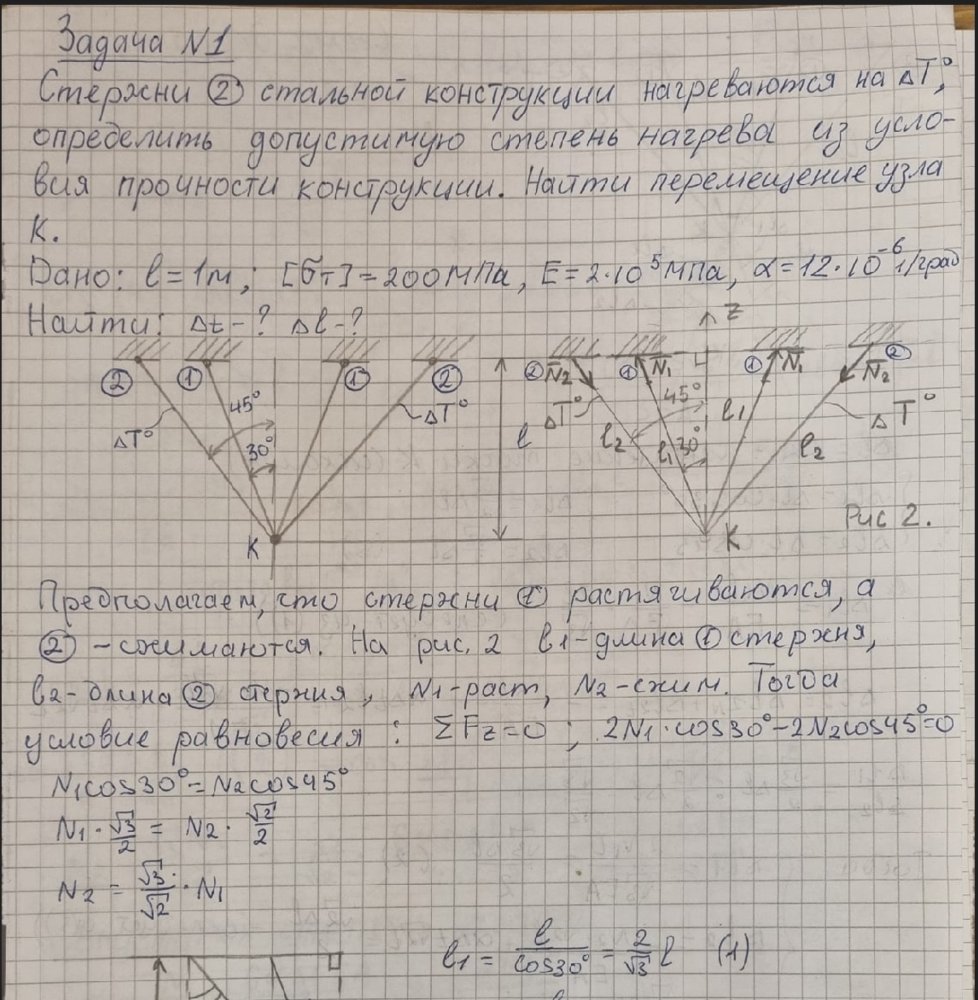 Задача N1
Стержни ② стальной конструкции нагреваются на ΔT°,
определить допустимую степень нагрева из усло-
вия прочности конструкции. Найти перемещение узла
К.
Дано: l=1м; [σт]=200МПа, E=2·10⁵МПа, α=12·10⁻⁶ 1/град
Найти: Δt-? Δl-?
② ① ① ②
ΔT° 45° 30° ΔT°
K
l
z
② N̄₂ ① N̄₁ ① N̄₁ ② N̄₂
ΔT° 45° l₁ ΔT°
l₂ l₁ 30° l₂
K
Рис 2.
Предполагаем, что стержни ① растягиваются, а
② - сжимаются. На рис. 2 l1-длина ① стержня,
l2-длина ② стержня, N1-раст, N2-сжим. Тогда
условие равновесия: ΣFz=0; 2N1·cos30°-2N2cos45°=0
N1cos30°=N2cos45°
N1·√3/2 = N2·√2/2
N2 = √3/√2·N1
l1 = l/cos30° = 2/√3 l (1)